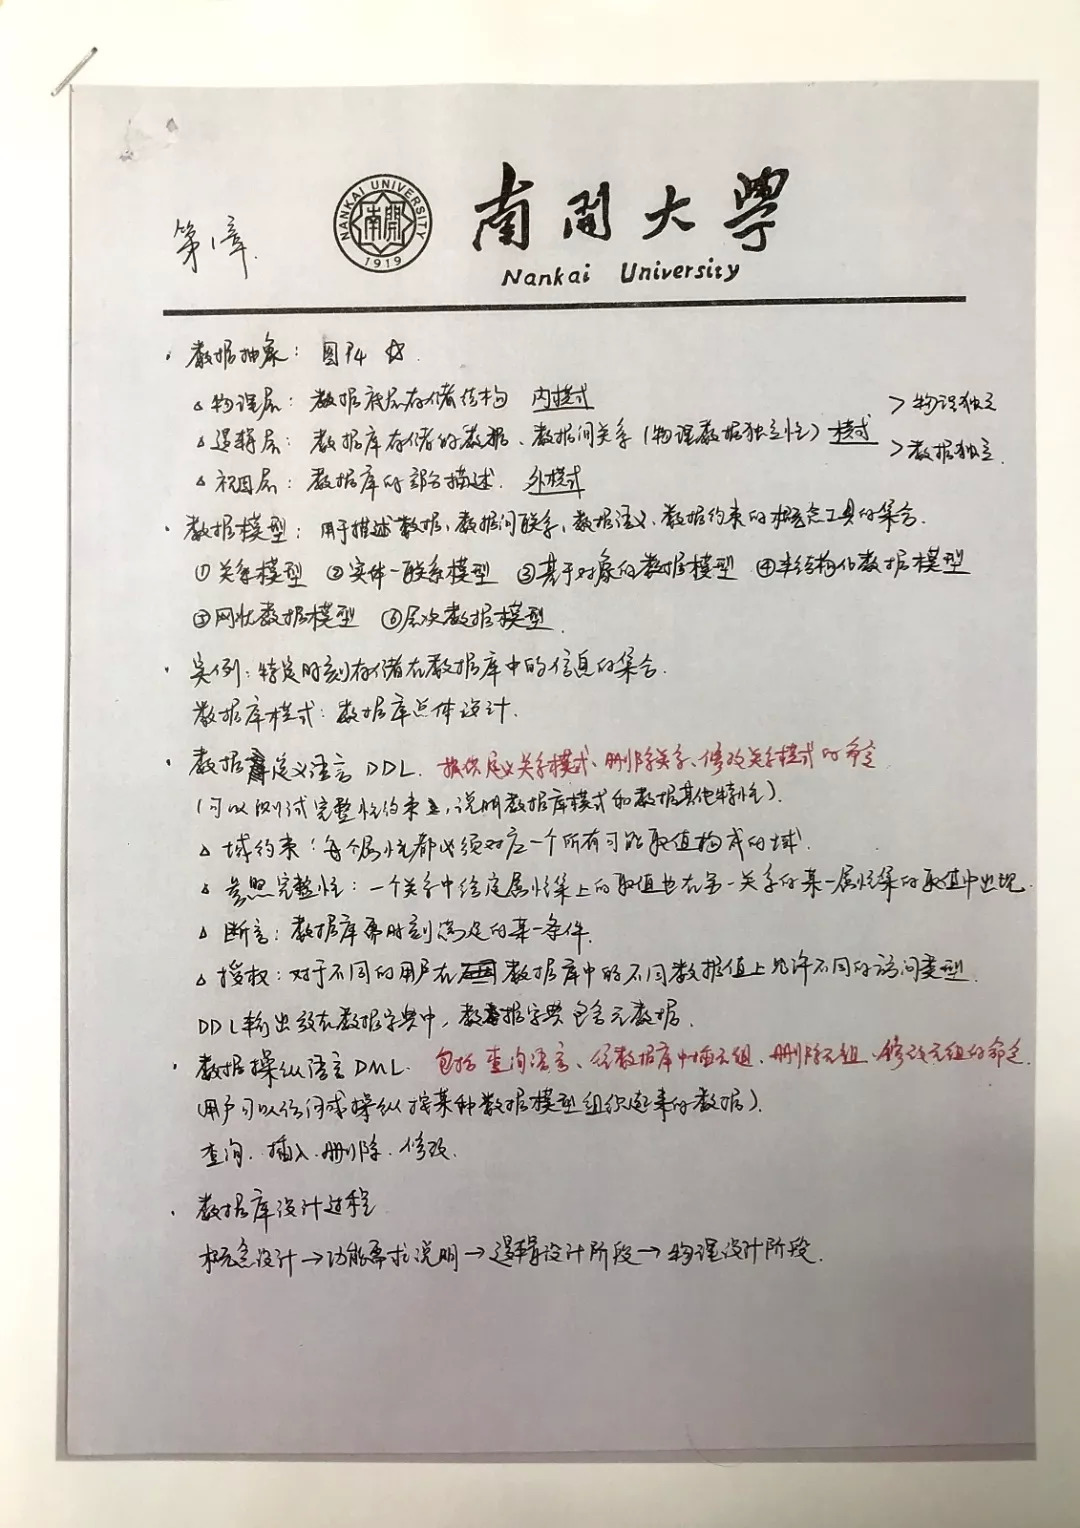 第1章.
NANKAI UNIVERSITY
南開
1919
南開大學
Nankai University
· 数据抽象: 图P4 ☆.
△ 物理层: 数据底层存储结构 内模式
> 物理独立
△ 逻辑层: 数据库存储的数据、数据间关系 (物理数据独立性) 模式
> 数据独立.
△ 视图层: 数据库的部分描述. 外模式
· 数据模型: 用于描述数据、数据间联系、数据语义、数据约束的概念工具的集合.
①关系模型 ②实体-联系模型 ③基于对象的数据模型 ④半结构化数据模型
⑤网状数据模型 ⑥层次数据模型.
· 实例: 特定时刻存储在数据库中的信息的集合.
数据库模式: 数据库总体设计.
· 数据定义语言 DDL. 提供定义关系模式、删除关系、修改关系模式的命令
(可以测试完整性约束, 说明数据库模式和数据其他特性).
△ 域约束: 每个属性都必须对应一个所有可能取值构成的域.
△ 参照完整性: 一个关系中给定属性集上的取值也在另一关系的某一属性集的取值中出现.
△ 断言: 数据库需时刻满足的某一条件.
△ 授权: 对于不同的用户在数据库中的不同数据值上允许不同的访问类型.
DDL输出放在数据字典中, 数据字典包含元数据.
· 数据操纵语言 DML. 包括查询语言、往数据库中插元组、删除元组、修改元组的命令.
(用户可以访问或操纵按某种数据模型组织起来的数据).
查询. 插入. 删除. 修改.
· 数据库设计过程
概念设计→功能需求说明→逻辑设计阶段→物理设计阶段.